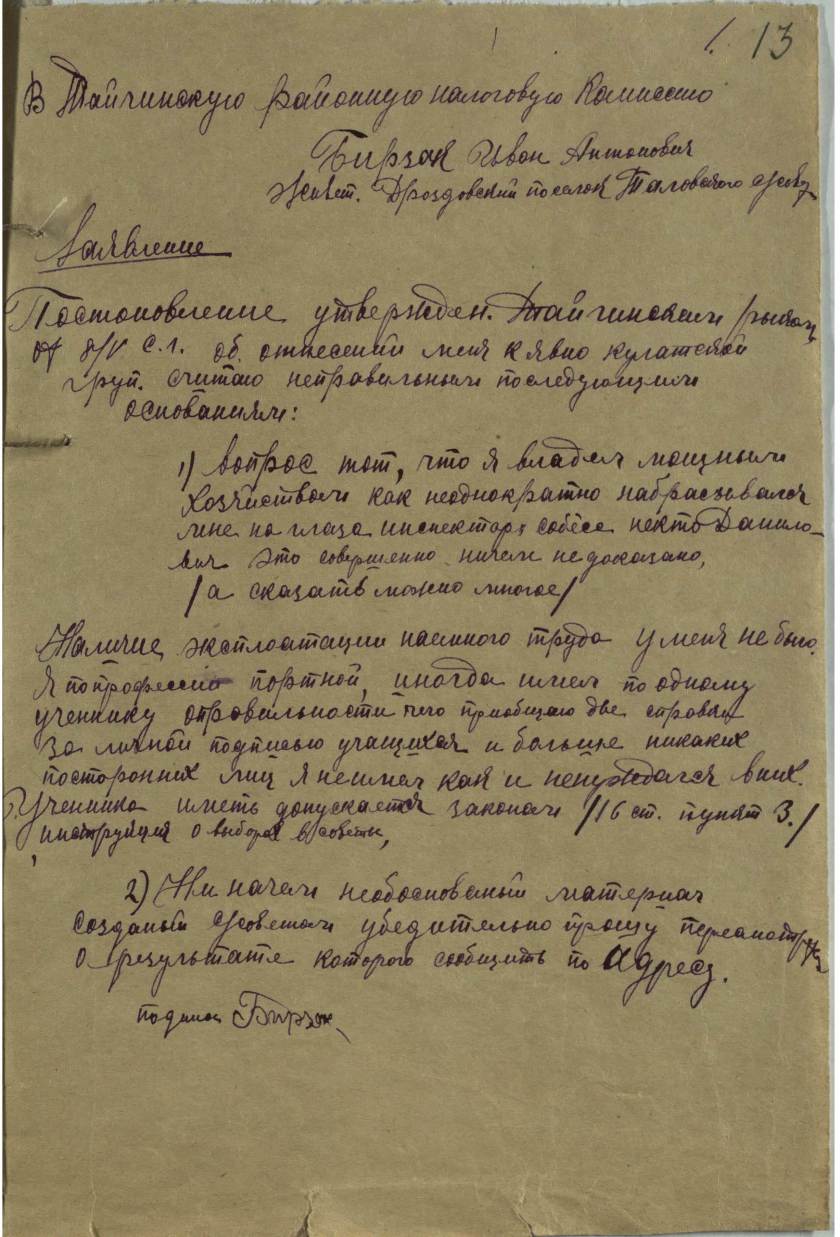 1. 13
В Тайгинскую районную налоговую Комиссию
Бирзак Иван Антонович
Жит. Дроздовский поселок Таловского с/совета
Заявление
Постоновление утвержден. Тайгинским
от 8/V с.г. об отнесении меня к явно кулатской
груп. считаю неправильным последующим
основаниям:
1) вопрос тот, что я владел мощным
хозяйством как неоднократно набрасывался
мне на глаза инспектор собеса некто Данило-
вич это совершенно ничем не доказано,
/а сказать можно многое/
Наличие эксплоатации наемного труда у меня не было.
Я по профессии портной, иногда имел по одному
ученнику оправильности чего приобщаю две справки
за личной подписью учащихся и больше никаких
посторонних лиц я неимел как и ненуждался в них.
Ученника иметь допускается законом /16 ст. пункт 3./
инструкция о выборах в советы,
2) Ни начем необоснованый материал
созданый с/советом убедительно прошу
о результате которого сообщить по адресу.
подпись Бирзак